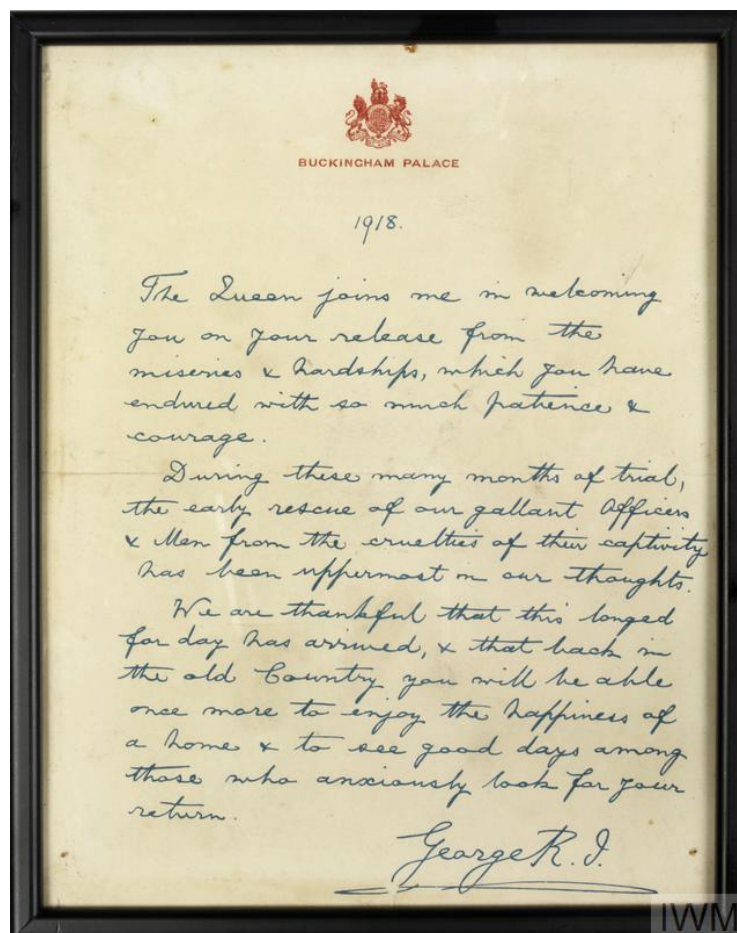 BUCKINGHAM PALACE
1918.
The Queen joins me in welcoming
you on your release from the
miseries & hardships, which you have
endured with so much patience &
courage.
During these many months of trial,
the early rescue of our gallant Officers
& Men from the cruelties of their captivity
has been uppermost in our thoughts.
We are thankful that this longed
for day has arrived, & that back in
the old Country you will be able
once more to enjoy the happiness of
a home & to see good days among
those who anxiously look for your
return.
George R.I.
IWM